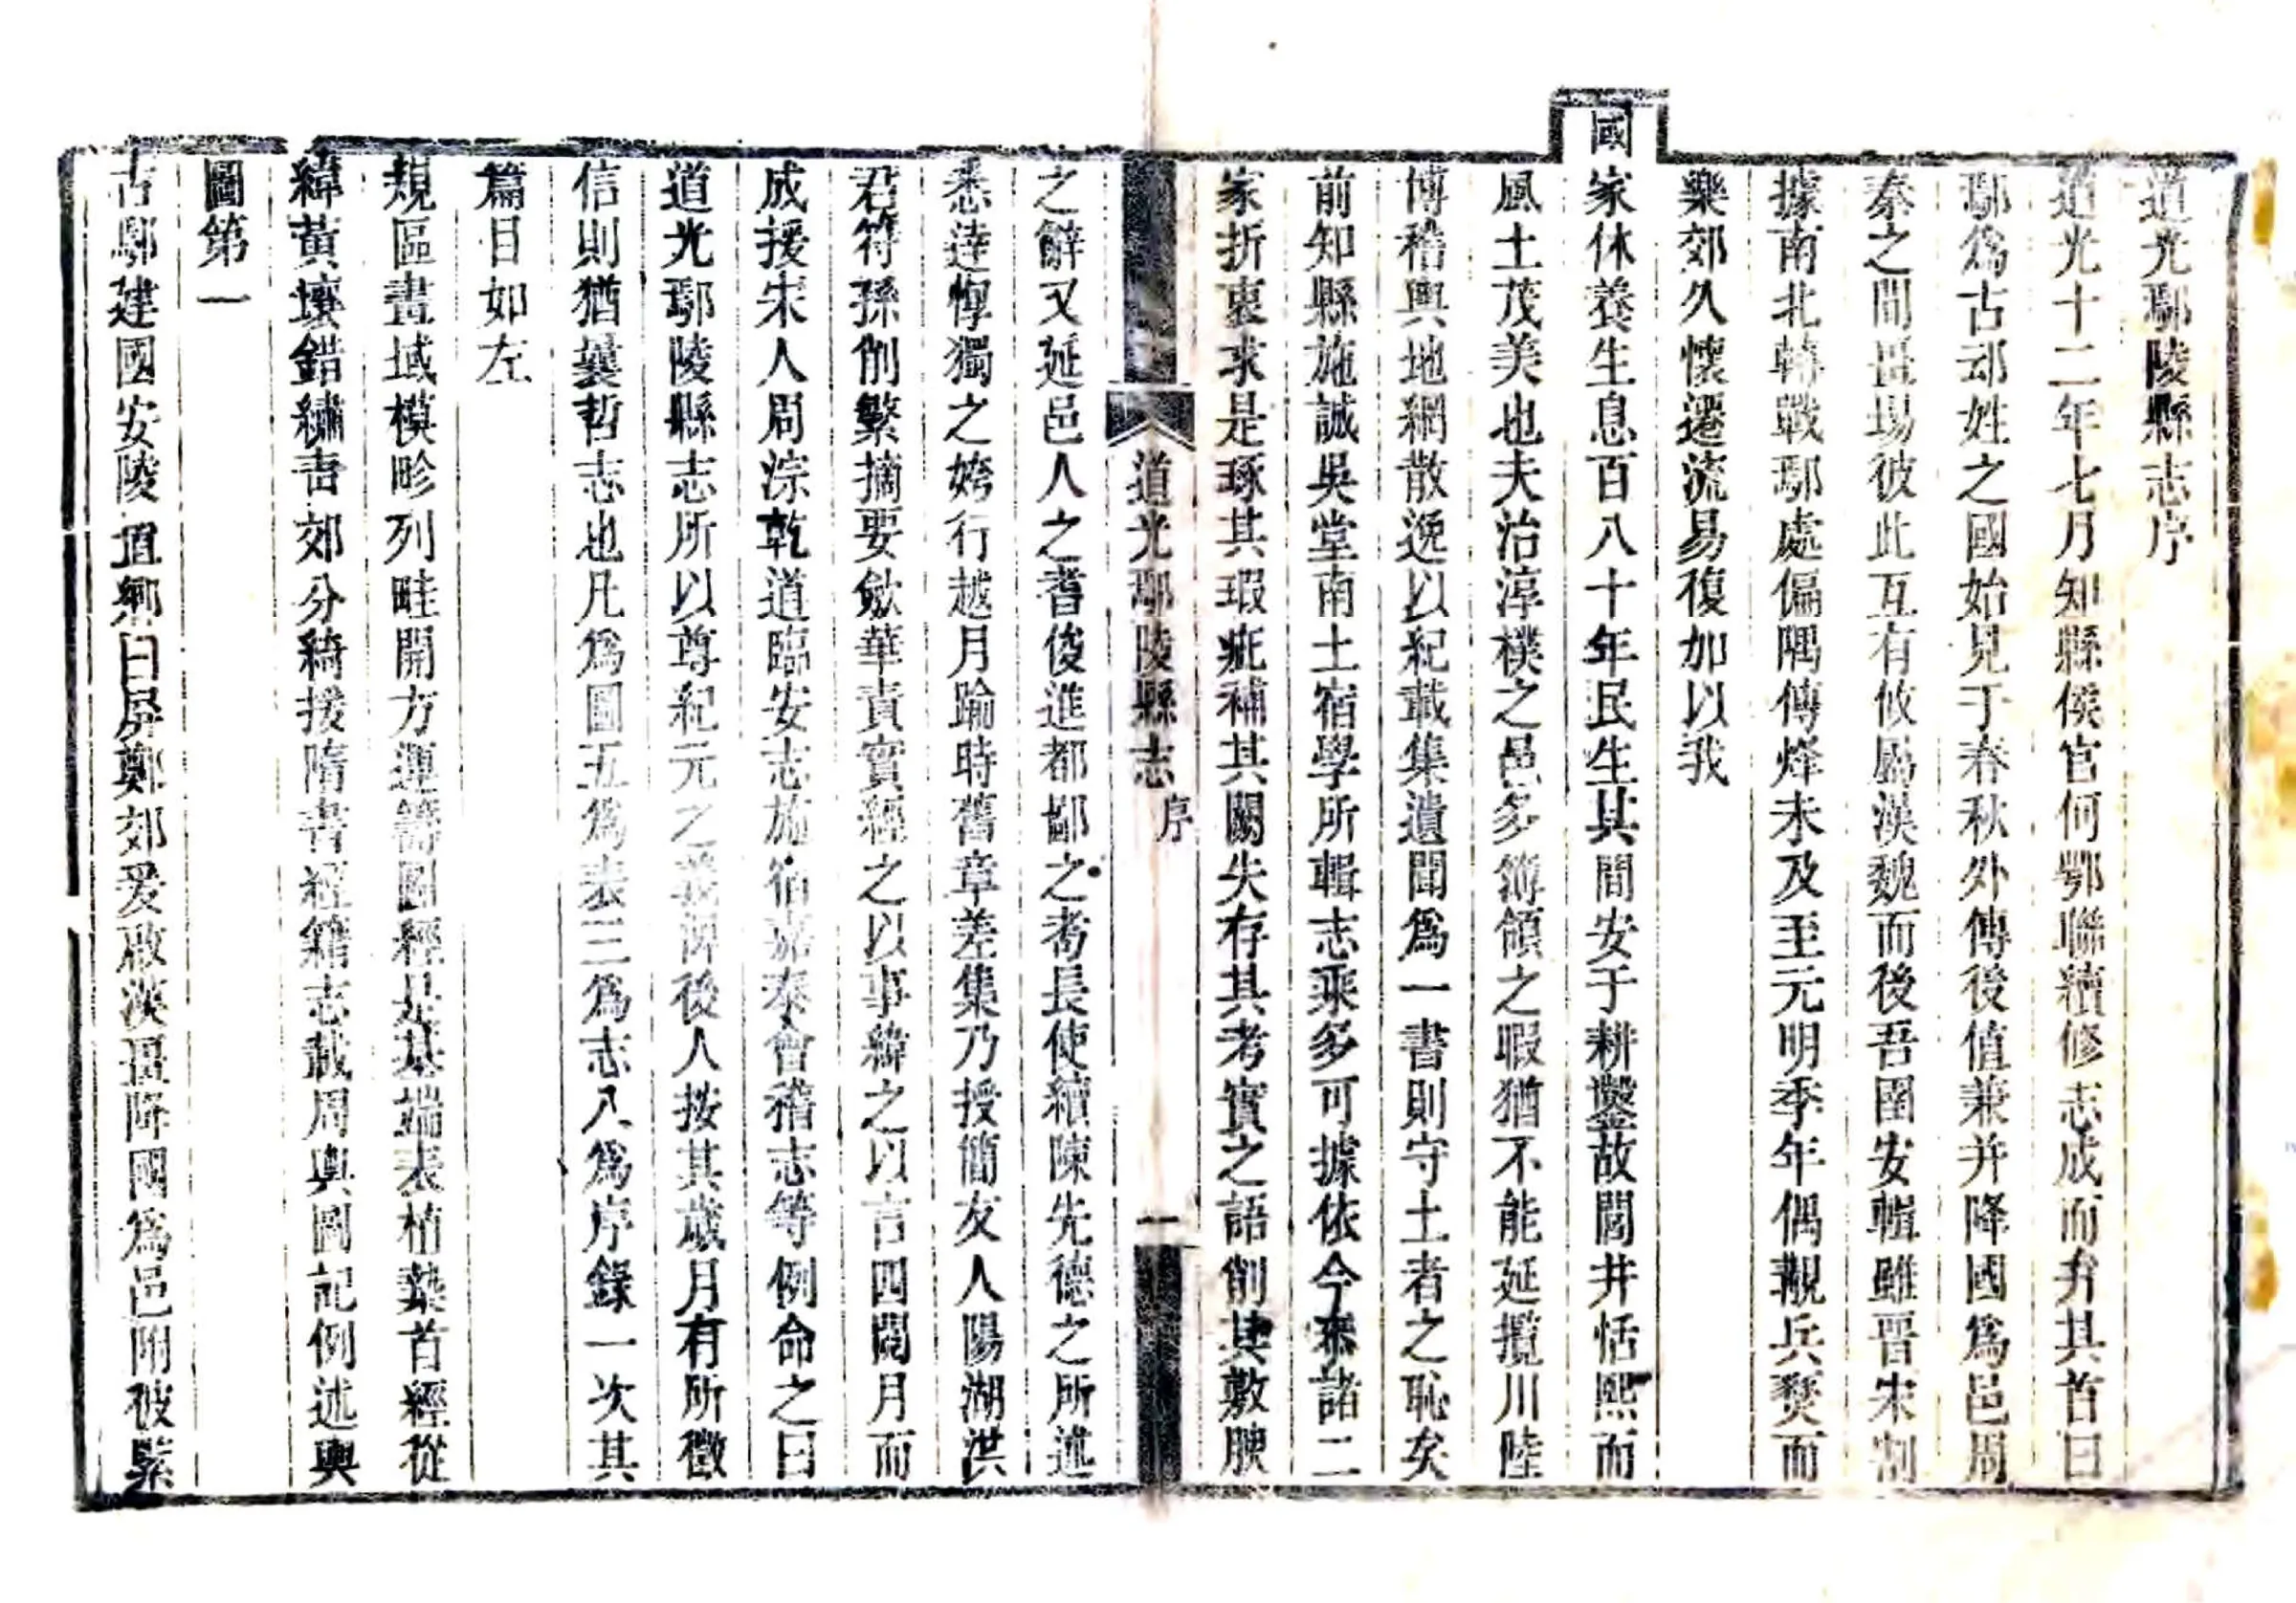 道光鄢陵縣志序
道光十二年七月知縣侯官何鄂聯續修志成而弁其首曰
鄢爲古妘姓之國始見于春秋外傳後值兼并降國爲邑周
秦之間畺場彼此互有攸屬漢魏而後吾圉安輯雖晉宋割
據南北轉戰鄢處偏隅傳烽未及至元明季年偶覯兵燹而
樂郊久懷遷流易復加以我
國家休養生息百八十年民生其間安于耕鑿故閭井恬熙而
風土茂美也夫治淳樸之邑多簿領之暇猶不能延攬川陸
博稽輿地網散逸以紀載集遺聞爲一書則守土者之恥矣
前知縣施誠吳堂南土宿學所輯志乘多可據依今叅諸二
家折衷求是琢其瑕疵補其闕失存其考實之語削其敷腴
道光鄢陵縣志 序 一
之辭又延邑人之耆俊進都鄙之考長使續陳先德之所述
悉達惸獨之姱行越月踰時舊章差集乃授簡友人陽湖洪
君符孫削繁摘要斂華責實經之以事緯之以言四閱月而
成援宋人周淙乾道臨安志施宿嘉泰會稽志等例命之曰
道光鄢陵縣志所以尊紀元之義俾後人按其歲月有所徵
信則猶曩哲志也凡爲圖五爲表三爲志八爲序錄一次其
篇目如左
規區畫域模畛列畦開方運籌圖經是基端表植蓺首經從
緯黃壤錯繡吿郊分綺援隋書經籍志載周輿圖記例述輿
圖第一
古鄢建國安陵道鄉曰屏鄭郊爰啟漢畺降國爲邑附彼緊